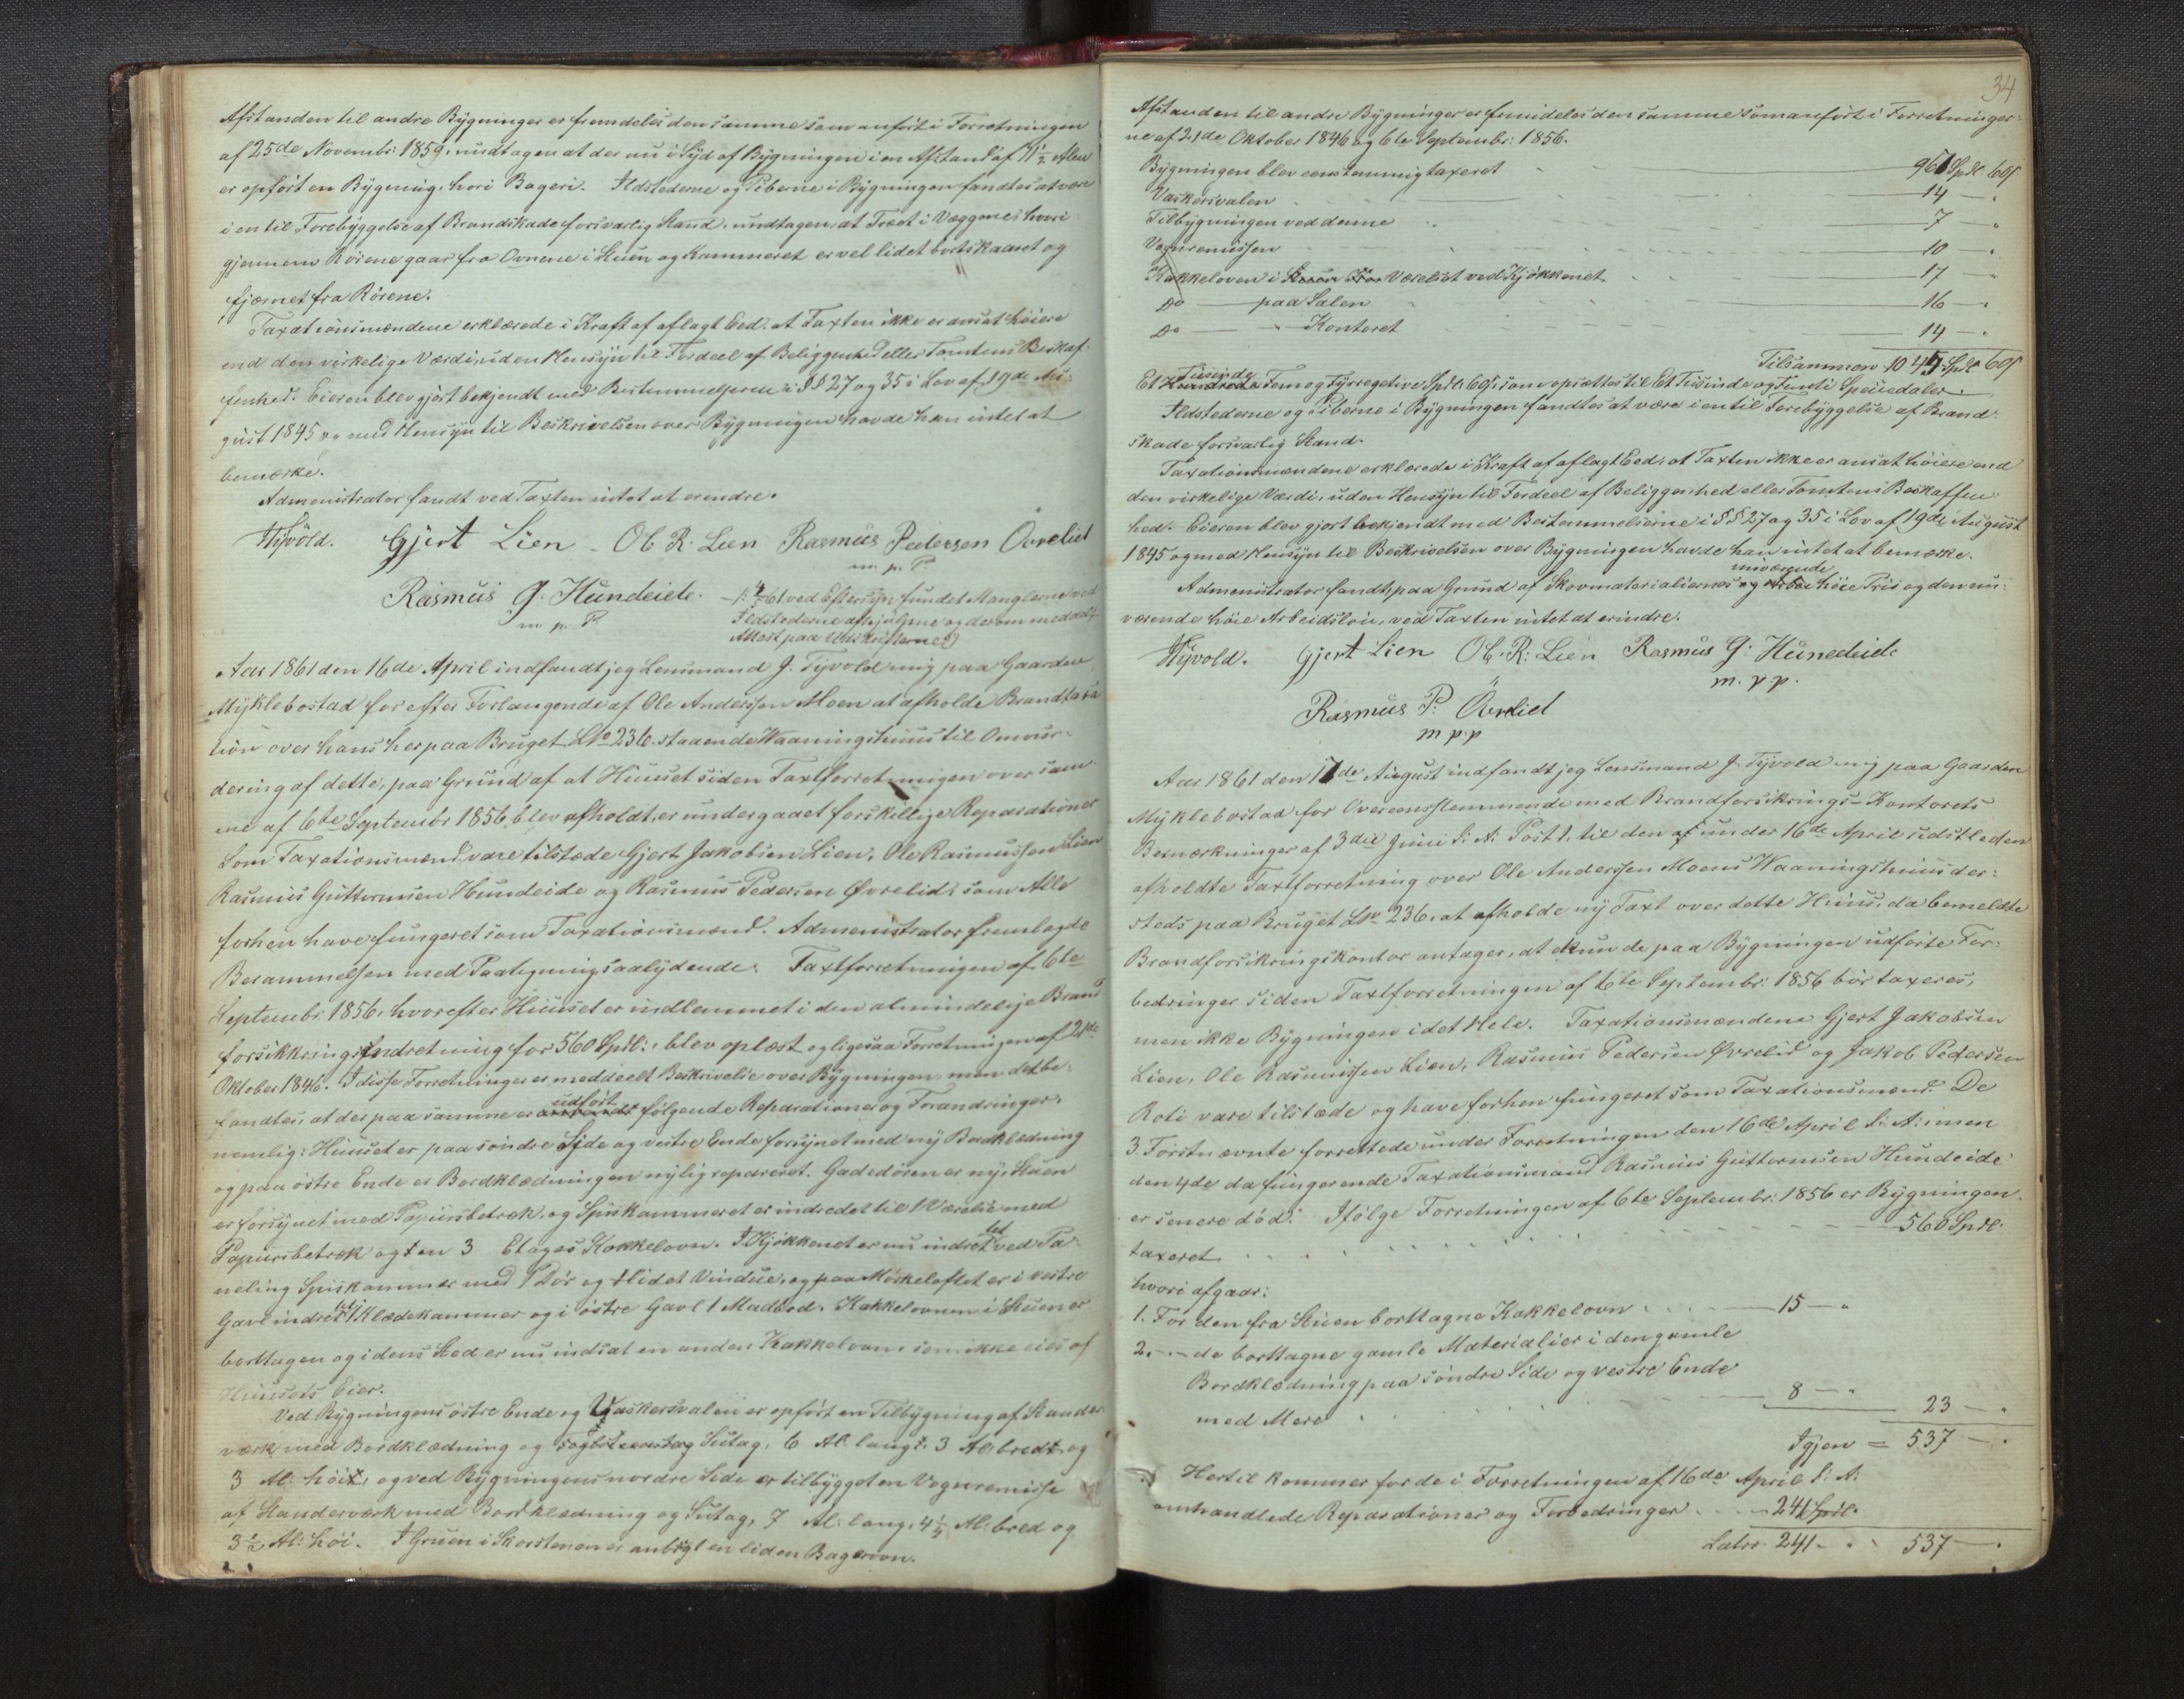 Afstanden til andre Bygninger er fremdeles den samme som anført i Forretningen
af 25de Novembr: 1859, undtagen at der nu i Syd af Bygningen i en Afstand af 11½ Alen
er opført en Bygning, hvori Bageri. Ildstederne og Piberne i Bygningen fandtes at være
i en til Forebyggelse af Brandskade forsvarlig Stand, undtagen, at Træet i Væggene, hvori-
gjennem Rørene gaar fra Ovnene i Stuen og Kammeret er vel lidet bortskaaret og
fjærnet fra Rørene.
Taxationsmændene erklærede i Kraft af aflagt Eed, at Taxten ikke er ansat høiere
end den virkelige Værdi, uden Hensyn til Fordeel af Beliggenhed eller Tomtens Beskaf-
fenhed. Eieren blev gjort bekjendt med Bestemmelserne i §§ 27 og 35 i Lov af 19de Au-
gust 1845 og med Hensyn til Beskrivelsen over Bygningen havde han intet at
bemærke.
Administrator fandt ved Taxten intet at erindre.
Tyvold. Gjert Lien - Ol R. Lien Rasmus Pedersen Øvrelid
m. p. P
Rasmus G. Hundeide. 61 ved Eftersyn fundet Manglerne ved
m p. P Ildstederne afhjulpne og derom meddelt
Attest paa Udskrifterne)
Aar 1861 den 16de April indfandt jeg Lensmand J. Tyvold mig paa Gaarden
Myklebostad for efter Forlangende af Ole Anderssen Moen at afholde Brandtaxa-
tion over hans her paa Bruget LNo 236 staaende Vaaningshuus til Omvur-
dering af dette, paa Grund af at Huuset siden Taxtforretningen over sam-
me af 6te Septembr 1856 blev afholdt, er undergaaet forskillige Reparationer
Som Taxationsmænd vare tilstæde Gjert Jakobsen Lien, Ole Rasmussen Lien
Rasmus Guttormsen Hundeide og Rasmus Pedersen Øvrelid, som Alle
forhen have fungeret som Taxationsmænd. Administrator fremlagde
Berammelsen med Paategning saalydende: Taxtforretningen af 6te
Septembr: 1856, hvorefter Huuset er indlemmet i den almindelige Brand
forsikkrings Indretning for 560 Spdl:, blev oplæst og ligesaa Forretningen af 21de
Oktober 1846. I disse Forretninger er meddeelt Beskrivelse over Bygningen, men det be-
fandtes, at der paa samme er udført følgende Reparationer og Forandringer,
nemlig: Huuset er paa søndre Side og vestre Ende forsynet med ny Bordklædning
og paa østre Ende er Bordklædningen nylig repareret. Gadedøren er ny, Stuen
er forsynet med Papirsbetræk, og Spiskammeret er indredet til 1 Værelse med
Papirsbetræk og en 3 Etages Kakkelovn. I Kjøkkenet er nu indrettet ved Pa-
neling Spiskammer med 1 Dør og 1 lidet Vindue, og paa Mørkeloftet er i vestre
Gavl indrettet 1 Klædekammer og i østre Gavl 1 Madbod. Kakkelovnen i Stuen er
borttagen og i dens Sted er nu indsat en anden Kakkelovn, som ikke eies af
Huusets Eier.
Ved Bygningens østre Ende og Vaskersvalen er opført en Tilbygning af Stander-
værk med Bordklædning og Sutag, 6 Al. langt, 3 Al. bredt og
3 Al: høit, og ved Bygningens nordre Side er tilbygget en Vognremisse
af Standerværk med Bordklædning og Sutag, 7 Al: lang, 4½ Al: bred og
3½ Al: høi. I Gruen i Skorstenen er anbragt en liden Bagerovn.
34
Afstanden til andre Bygninger er fremdeles den samme som anført i Forretninger-
ne af 21de Oktober 1846 og 6te Septembr: 1856.
Bygningen blev eenstemmig taxeret 967 Spdl. 60 ß
Vaskersvalen 14 —
Tilbygningen ved denne 7 —
Vognremissen 10 —
Kakkeloven i Værelset ved Kjøkkenet 17 —
Do — paa Salen 16 —
Do — " Kontoret 14 —
Tilsammen 1045 Spdl. 60 ß
Et Tusinde Fem og Fyrregetive Spdl. 60 ß, som opsættes til Et Tusinde og Femti Speciedaler.
Ildstederne og Piberne i Bygningen fandtes at være i en til Forebyggelse af Brand-
skade forsvarlig Stand.
Taxationsmændene erklærede i Kraft af aflagt Eed, at Taxten ikke er ansat høiere end
den virkelige Værdi, uden Hensyn til Fordeel af Beliggenhed eller Tomtens Beskaffen-
hed. Eieren blev gjort bekjendt med Bestemmelserne i §§ 27 og 35 i Lov af 19de August
1845 og med Hensyn til Beskrivelsen over Bygningen havde han intet at bemærke.
Administrator fandt, paa Grund af Skovmaterialiernes nuværende høie Pris og den nu-
værende høie Arbeidsløn, ved Taxten intet at erindre.
Tyvold. Gjert Lien Ol. R. Lien Rasmus G. Hundeide
m. p. p.
Rasmus P. Øvrelid
m p. p
Aar 1861 den 17de August indfandt jeg Lensmand J. Tyvold mig paa Gaarden
Myklebostad for Overeensstemmende med Brandforsikrings-Kontorets
Bemærkninger af 3die Juni d: A: Post 1, til den under 16de April sidstleden
afholdte Taxtforretning over Ole Anderssen Moens Vaaningshuus der-
steds paa Bruget LNo 236, at afholde ny Taxt over dette Huus, da bemeldte
Brandforsikringskontor antager, at kun de paa Bygningen udførte For-
bedringer siden Taxtforretningen af 6te Septembr: 1856 bør taxeres,
men ikke Bygningen i det Hele. Taxationsmændene Gjert Jakobsen
Lien, Ole Rasmussen Lien, Rasmus Pedersen Øvrelid og Jakob Pedersen
Roti vare tilstæde og have forhen fungeret som Taxationsmænd. De
3 Førstnævnte forrettede under Forretningen den 16de April d: A:, men
den 4de da fungerende Taxationsmand Rasmus Guttormsen Hundeide
er senere død. Ifølge Forretningen af 6te Septembr: 1856 er Bygningen
taxeret 560 Spdl:
hvori afgaar:
1. For den fra Stuen borttagne Kakkelovn 15 — "
2. — " de borttagne gamle Materialier i den gamle
Bordklædning paa søndre Side og vestre Ende
med Mere 8 — " 23 — "
Igjen = 537 — "
Hertil kommer for de i Forretningen af 16de April d: A:
omhandlede Reparationer og Forbedringer 241 Spdl.
Latus 241 — " 537 — "